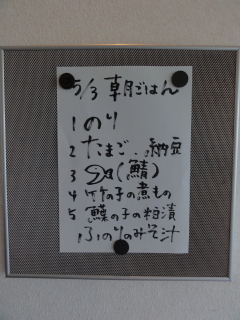 5/3 朝ごはん
1 のり
2 たまご、納豆
3 (鯖)
4 竹の子の煮もの
5 鰈の子の粕漬
ふのりのみそ汁